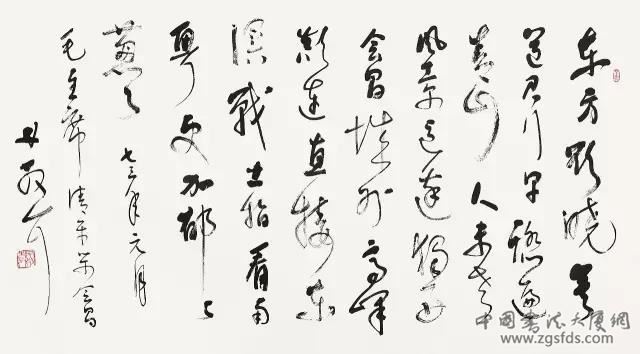 东方欲晓莫
道君行早踏遍
青山人未老
风景这边独好
会昌城外高峰
颠连直接东
溟戰士指看南
粤更加郁々
葱々 七三年元月
毛主席清平乐会昌
中国书法大厦网
www.zgsfds.com